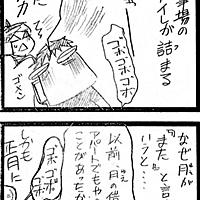 事場の
イレが詰まる
ゴボゴボゴボ
カ
なぜ月が
「また」と言
いうと…
以前、月の借
アパートでもや
ことがあったか
ゴボゴボ
しかも
正月に